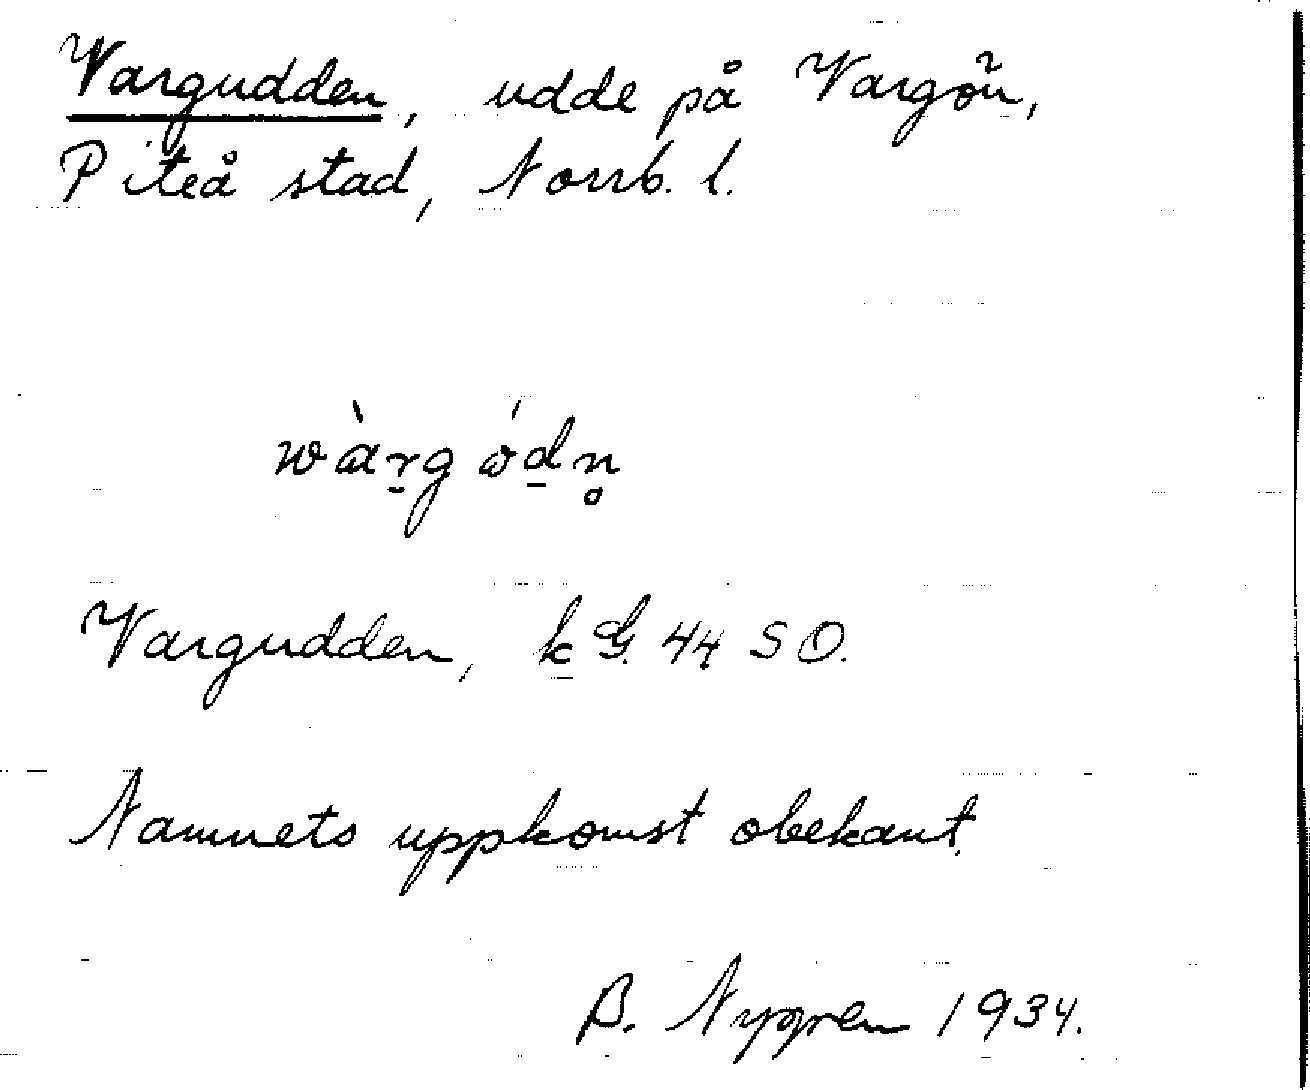 Vargudden, udde på Vargön,
Piteå stad, Norrb. l.
wàrg ódn̥
Vargudden, k G. 44 SO.
Namnets uppkomst obekant.
B. Nygren 1934.